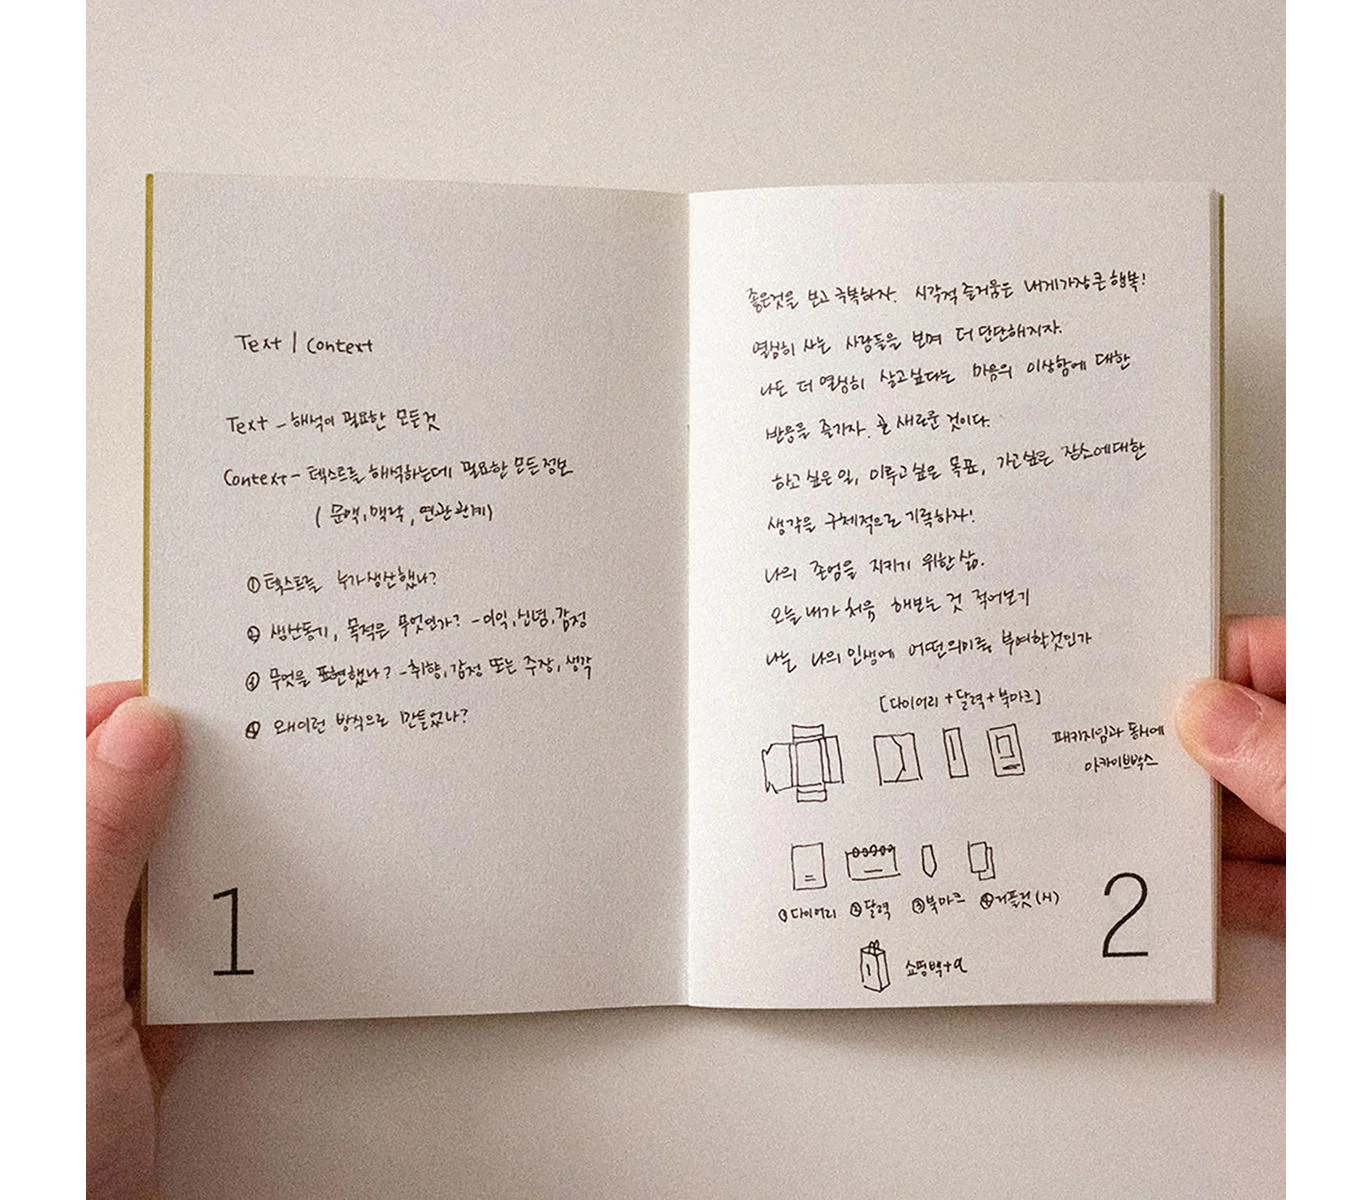 Text | Context
Text - 해석이 필요한 모든것
Context - 텍스트를 해석하는데 필요한 모든정보
(문맥, 맥락, 연관관계)
① 텍스트를 누가생산했나?
② 생산동기, 목적은 무엇인가? - 이익, 신념, 감정
③ 무엇을 표현했나? - 취향, 감정 또는 주장, 생각
④ 왜이런 방식으로 만들었나?
1
좋은것을 보고 극복하자. 시각적 즐거움은 내게가장큰행복!
열심히 사는 사람들을 보며 더 단단해지자.
나도 더 열심히 살고싶다는 마음의 이상함에 대한
반응을 즐기자. 또 새로운 것이다.
하고 싶은 일, 이루고 싶은 목표, 가고싶은 장소에대한
생각을 구체적으로 기록하자!
나의 존엄을 지키기 위한 삶.
오늘 내가 처음 해보는 것 적어보기
나는 나의 인생에 어떤의미를 부여할것인가
[다이어리 + 달력 + 북마크]
패키지임과 동시에
아카이브박스
① 다이어리 ② 달력 ③ 북마크 ④
쇼핑백+α
2